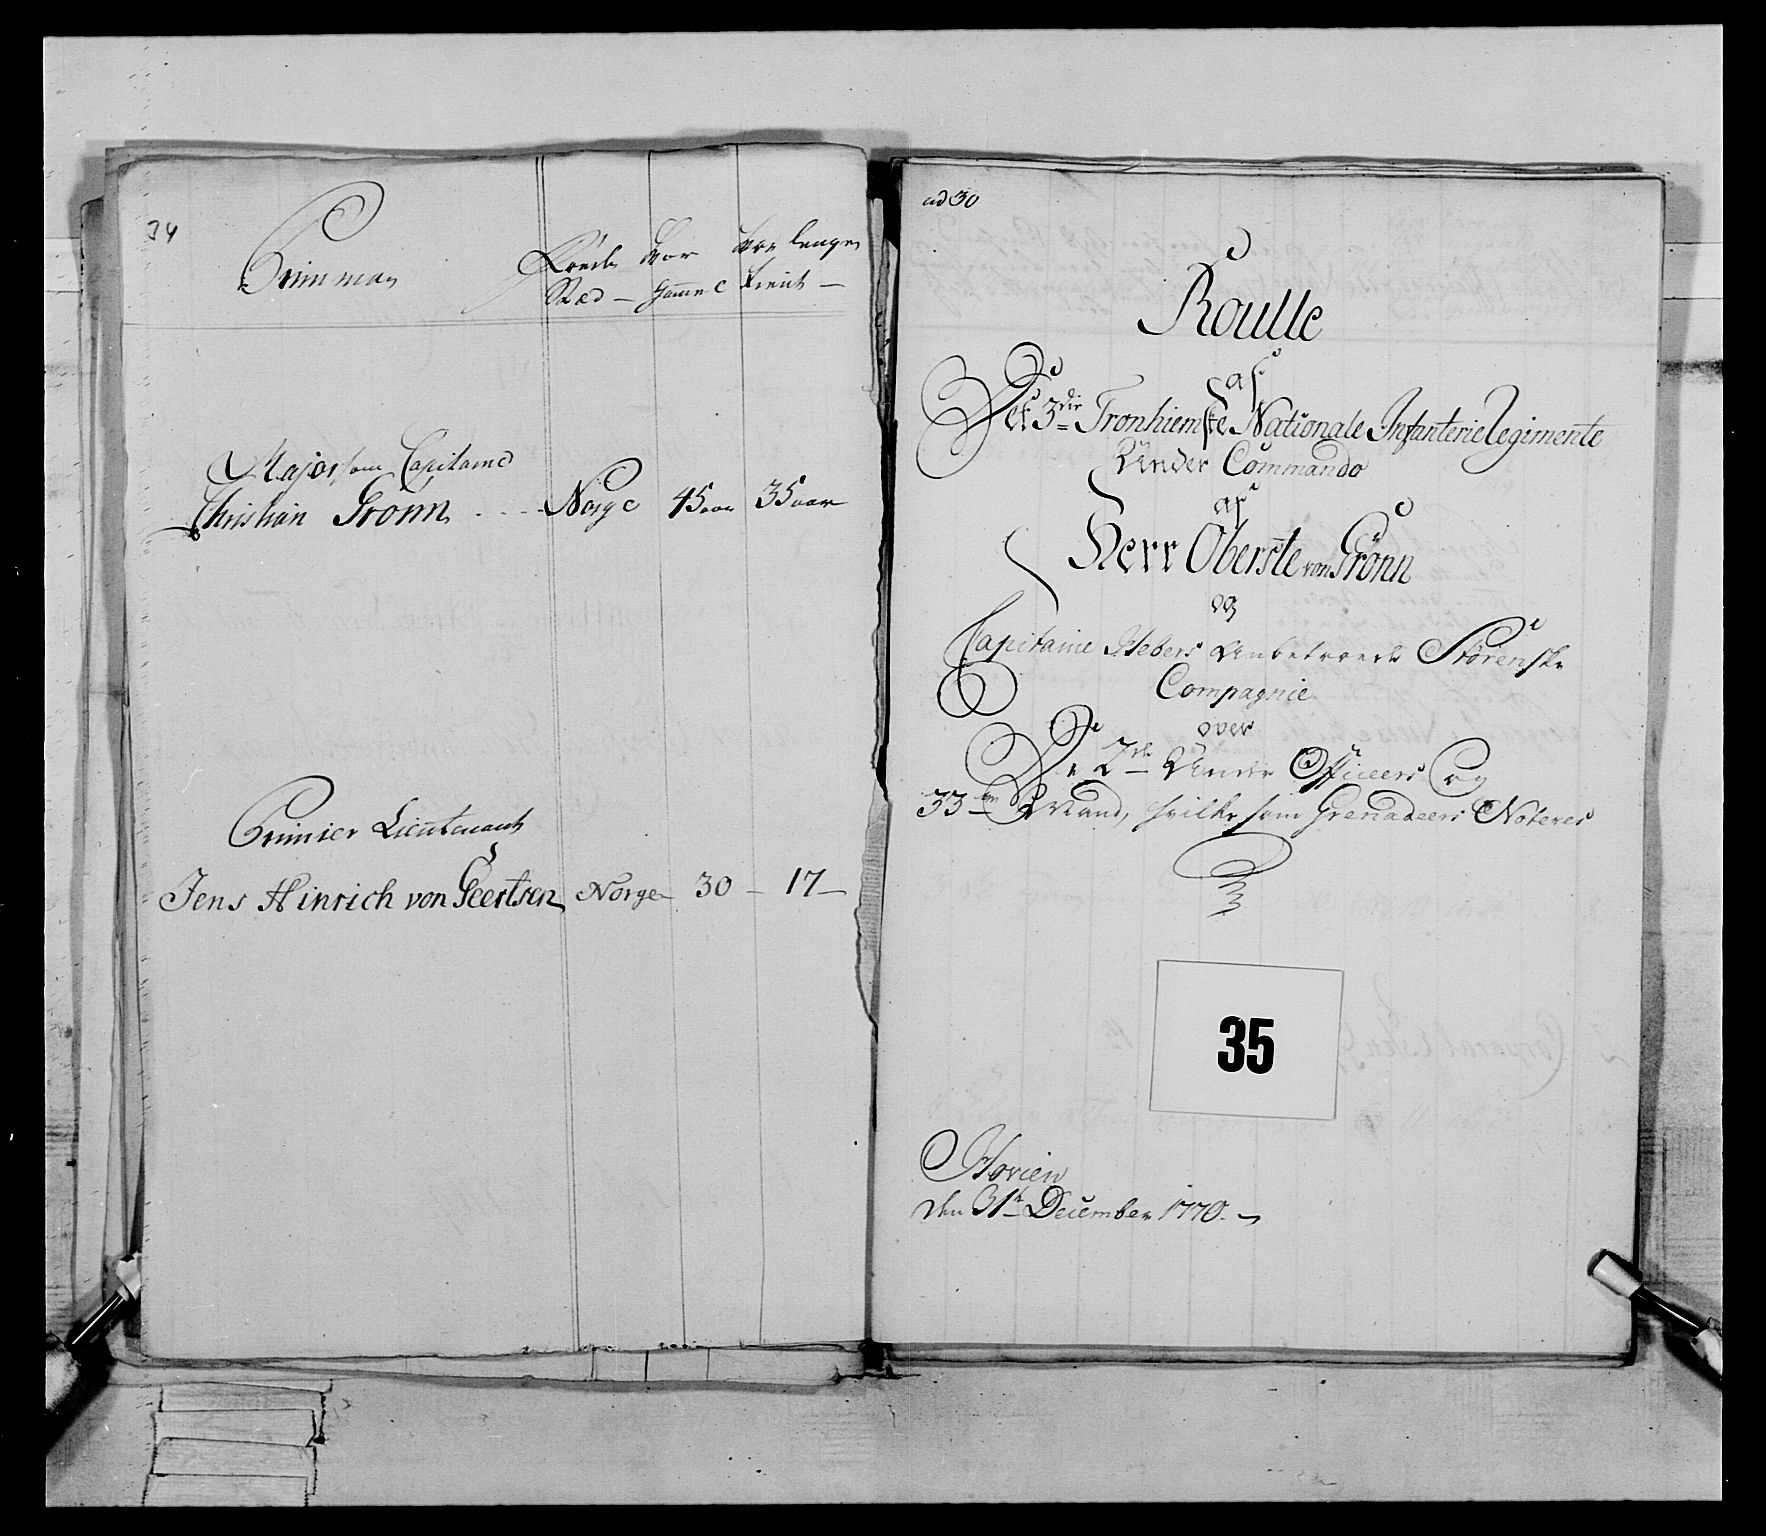 34
Primman
Föede Hvor Hvor lenge
Stæd — Gammel tient —
Major som Capitaine
Christian Grönn - - - Norge 45 aar 35 aar
Primier Lieutenant
Jens Hinrich von Geertsen Norge 30 — 17 —
ad 30
Roulle
af
Det 3die Tronhiemske Nationale Infanterie Regimente
Under Commando
af
Herr Oberste von Grönn
og
Capitaine Hebers Anbetroede Störenske
Compagnie
over
De 2de Under Officeers og
33 Mand, hvilke som Grenadeers Noteres
35
Hovien
den 31te December 1770. —